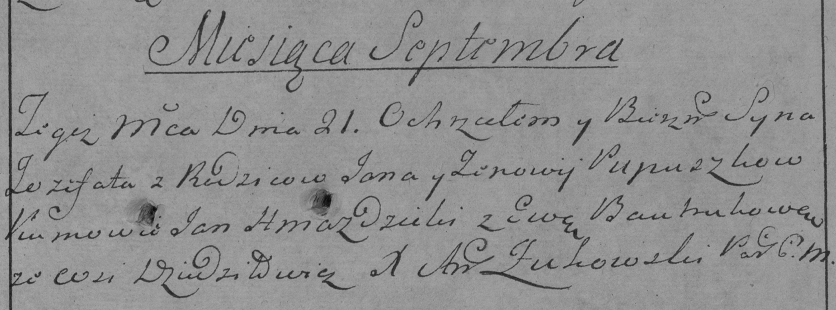 Miesiąca Septembra
Tegoż Mca Dnia 21. Ochrzciłem y Bierzm Syna
Jozefata z Rodzicow Jana y Zenowij Pupuszkow
Kumowie Jan Hmazdzicki z Ewą
ze wsi X Anᵈ Żukowski P. m.